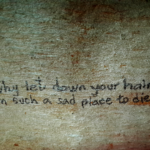 why let down your hair
in such a sad place to die